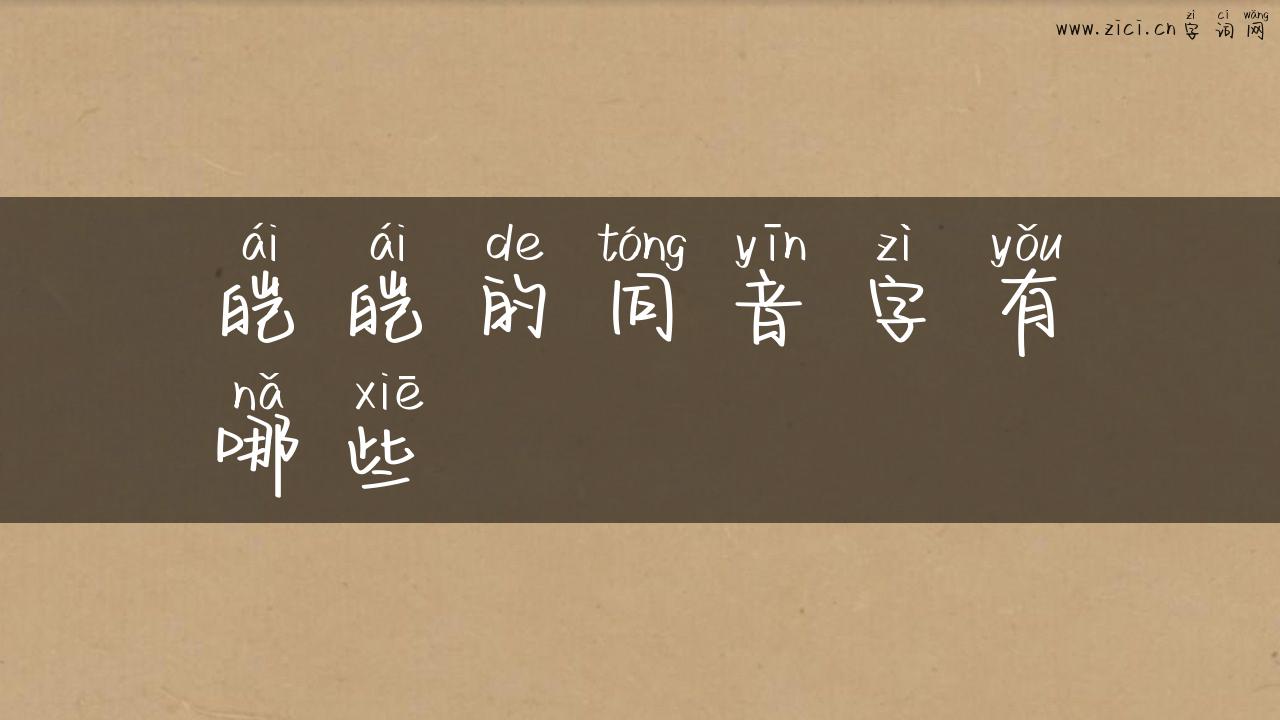 zì cí wǎng
www.zici.cn 字词网
ái ái de tóng yīn zì yǒu
皑皑的同音字有
nǎ xiē
哪些